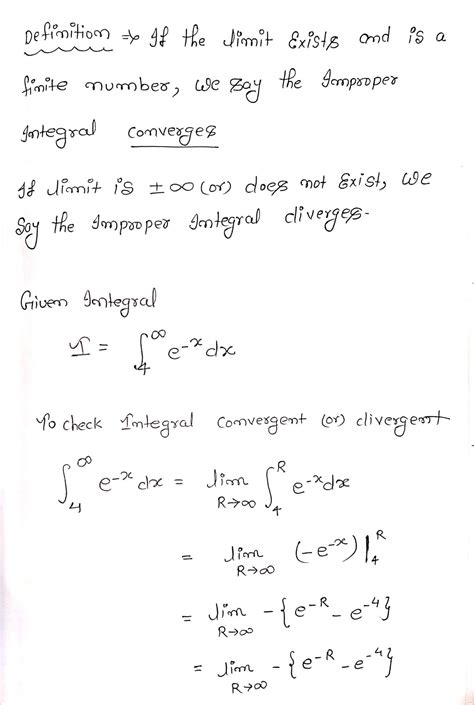 Definition → If the limit Exists and is a
finite number, we say the Improper
Integral converges
If limit is ±∞ (or) does not Exist, we
Say the Improper Integral diverges.
Given Integral
I = ∫₄^∞ e^-x dx
To check Integral convergent (or) divergent
∫₄^∞ e^-x dx = lim R→∞ ∫₄^R e^-x dx
= lim R→∞ (-e^-x)|₄^R
= lim R→∞ -{e^-R - e^-4}
= lim R→∞ -{e^-R - e^-4}